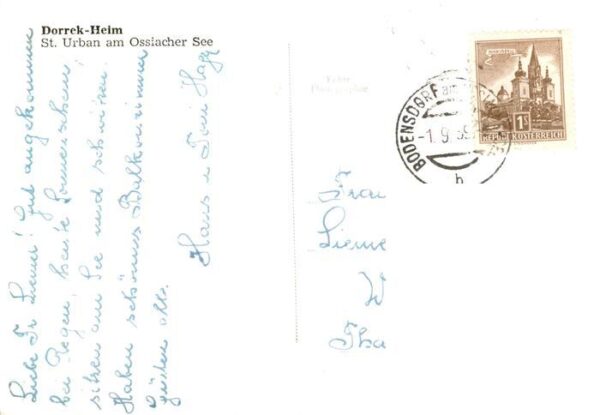 Dorrek-Heim
St. Urban am Ossiacher See
Liebe Fr. Liemer! Gut angekommen
bei Regen, heute Sonnenschein,
sitzen am See und schwitzen.
Haben schönes Balkonzimmer
grüßen alle.
Hans u Toni
BODENSDORF am
-1.9.59
b
MARIAZELL
1S
REPUBLIK ÖSTERREICH
Frau
W